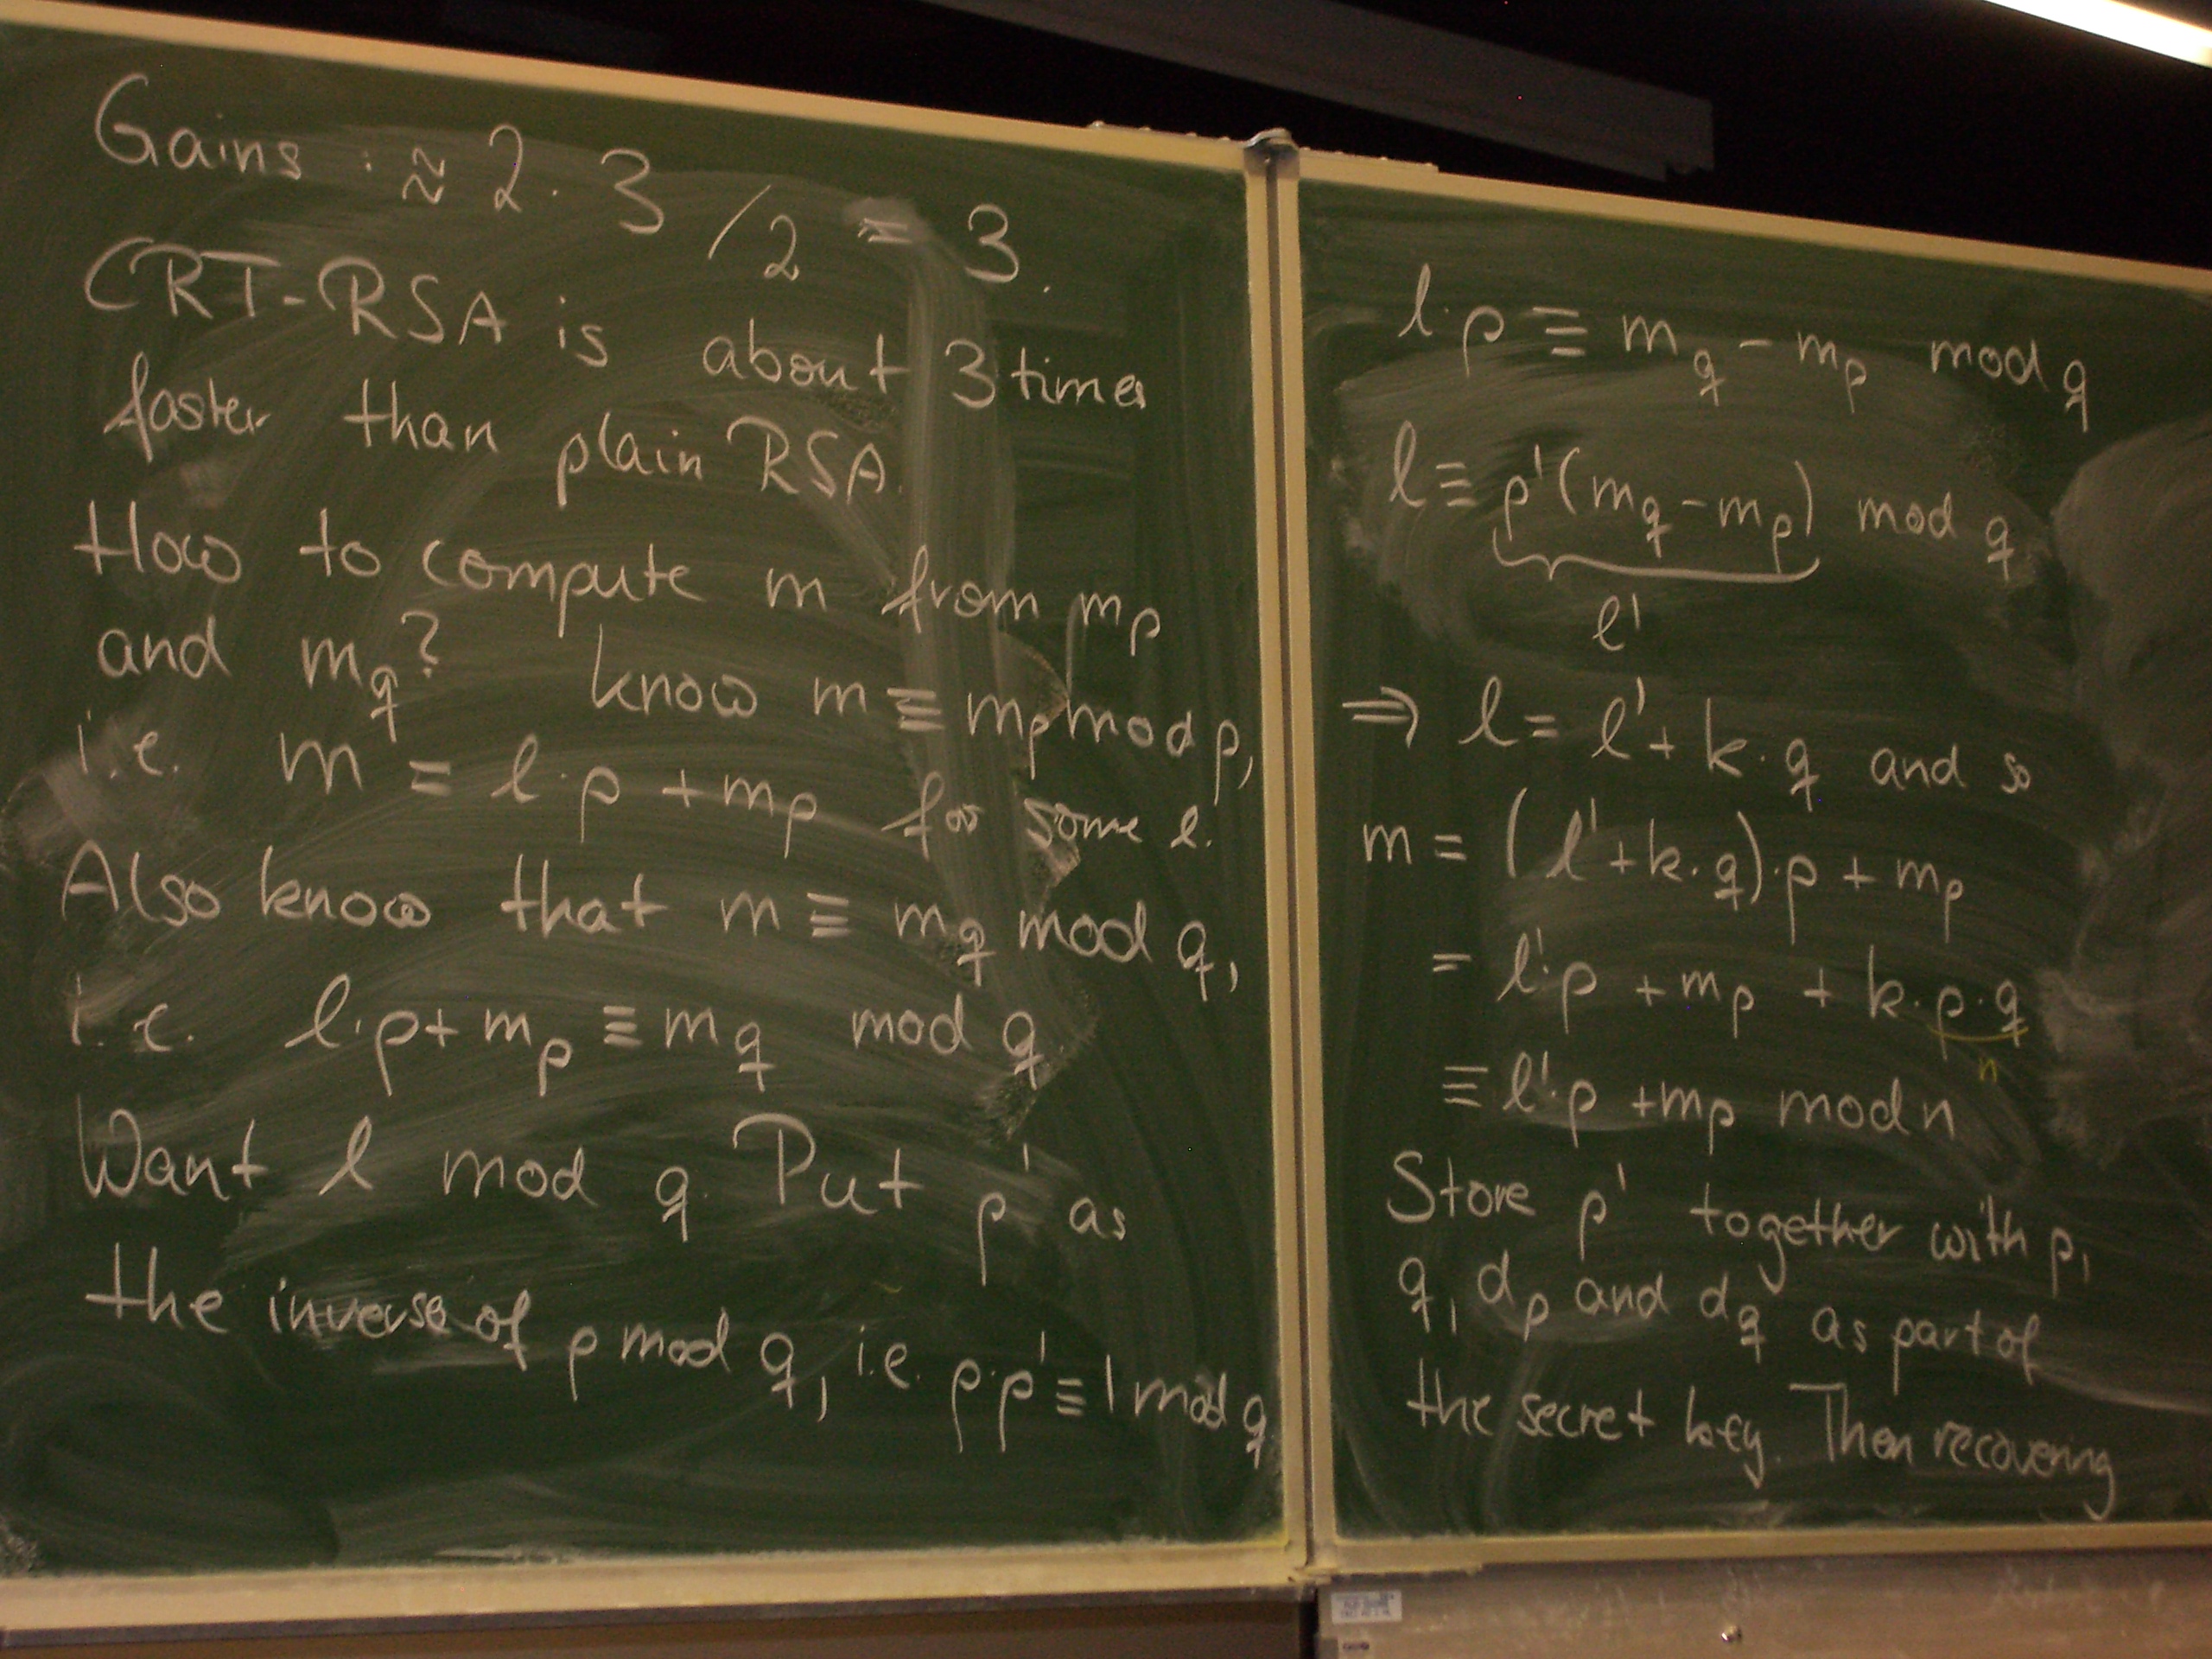 Gains : ≈ 2 · 3 / 2 = 3.
CRT-RSA is about 3 times
faster than plain RSA.
How to compute m from m_p
and m_q? know m ≡ m_p mod p,
i.e. m = l·p + m_p for some l.
Also know that m ≡ m_q mod q,
i.e. l·p + m_p ≡ m_q mod q.
Want l mod q. Put p' as
the inverse of p mod q, i.e. p·p' ≡ 1 mod q
l·p ≡ m_q - m_p mod q
l ≡ p'(m_q - m_p) mod q
l'
⇒ l = l' + k·q and so
m = (l' + k·q)·p + m_p
= l'·p + m_p + k·p·q
n
≡ l'·p + m_p mod n
Store p' together with p,
q, d_p and d_q as part of
the secret key. Then recovering